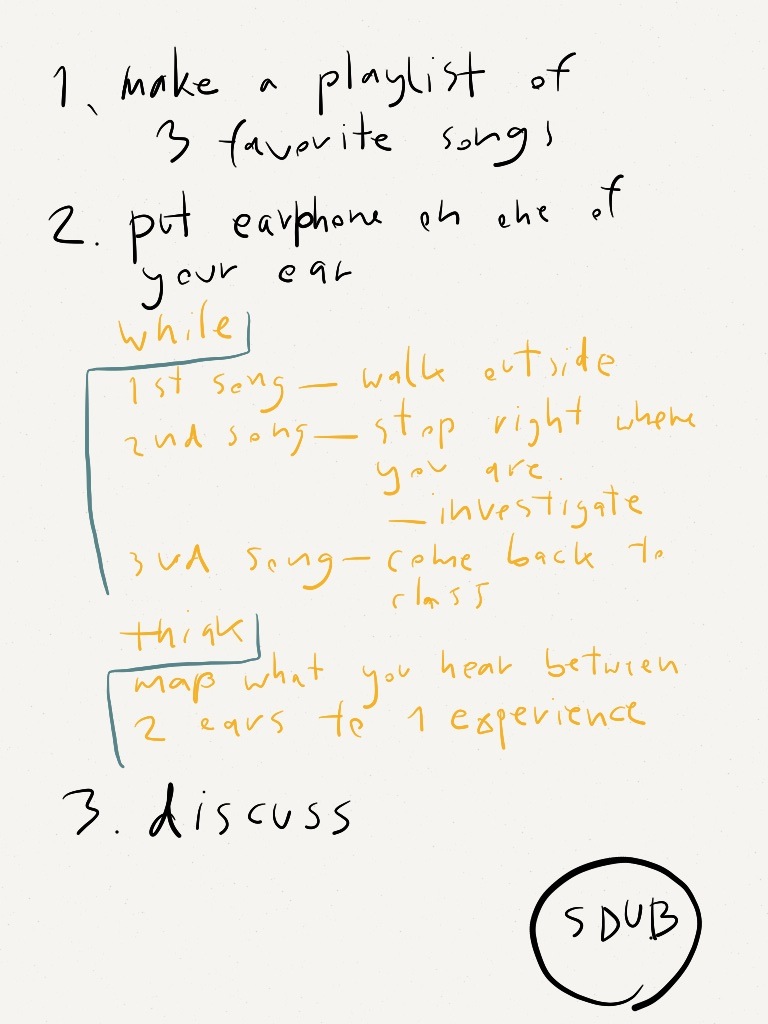 1. make a playlist of
3 favorite songs
2. put earphone on one of
your ear
while
1st song — walk outside
2nd song — stop right where
you are
— investigate
3rd song — come back to
class
think
map what you hear between
2 ears to 1 experience
3. discuss
SDUB